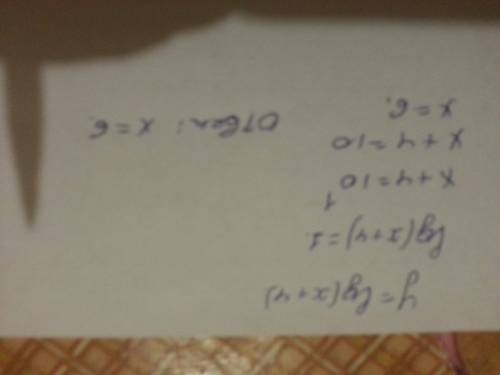 y = lg(x+4)
lg(x+4) = 1.
x + 4 = 10¹
x + 4 = 10
x = 6.
Ответ: x = 6.